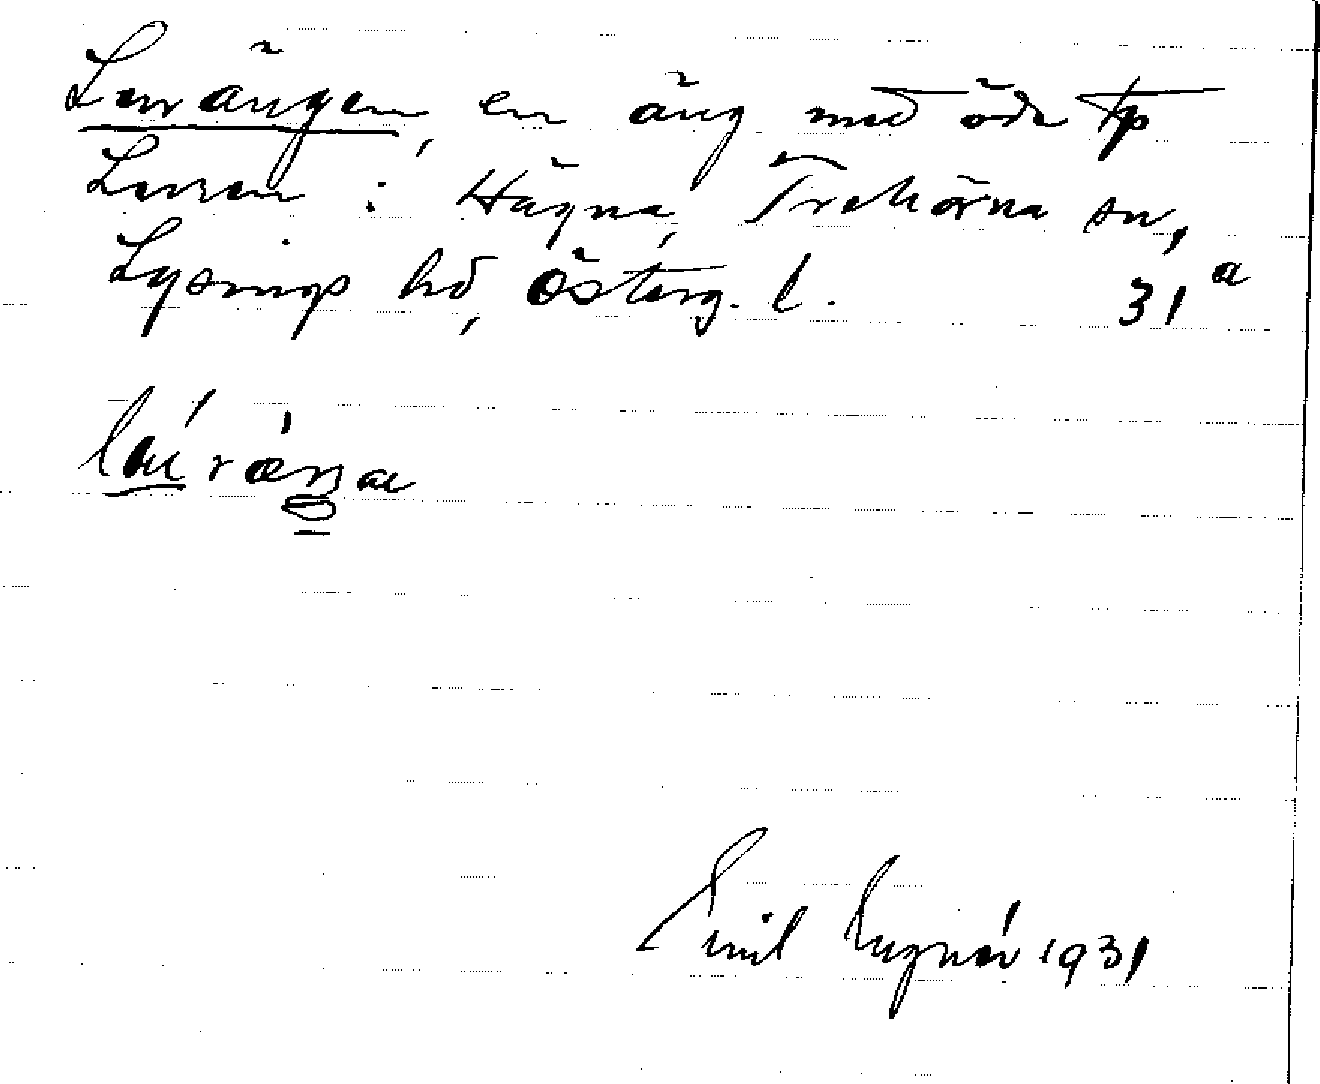 Lurängen, en äng med öde tp
Luren i Hägna, Trehörna sn,
Lysings hd, Österg. l. 31 a
Emil 1931